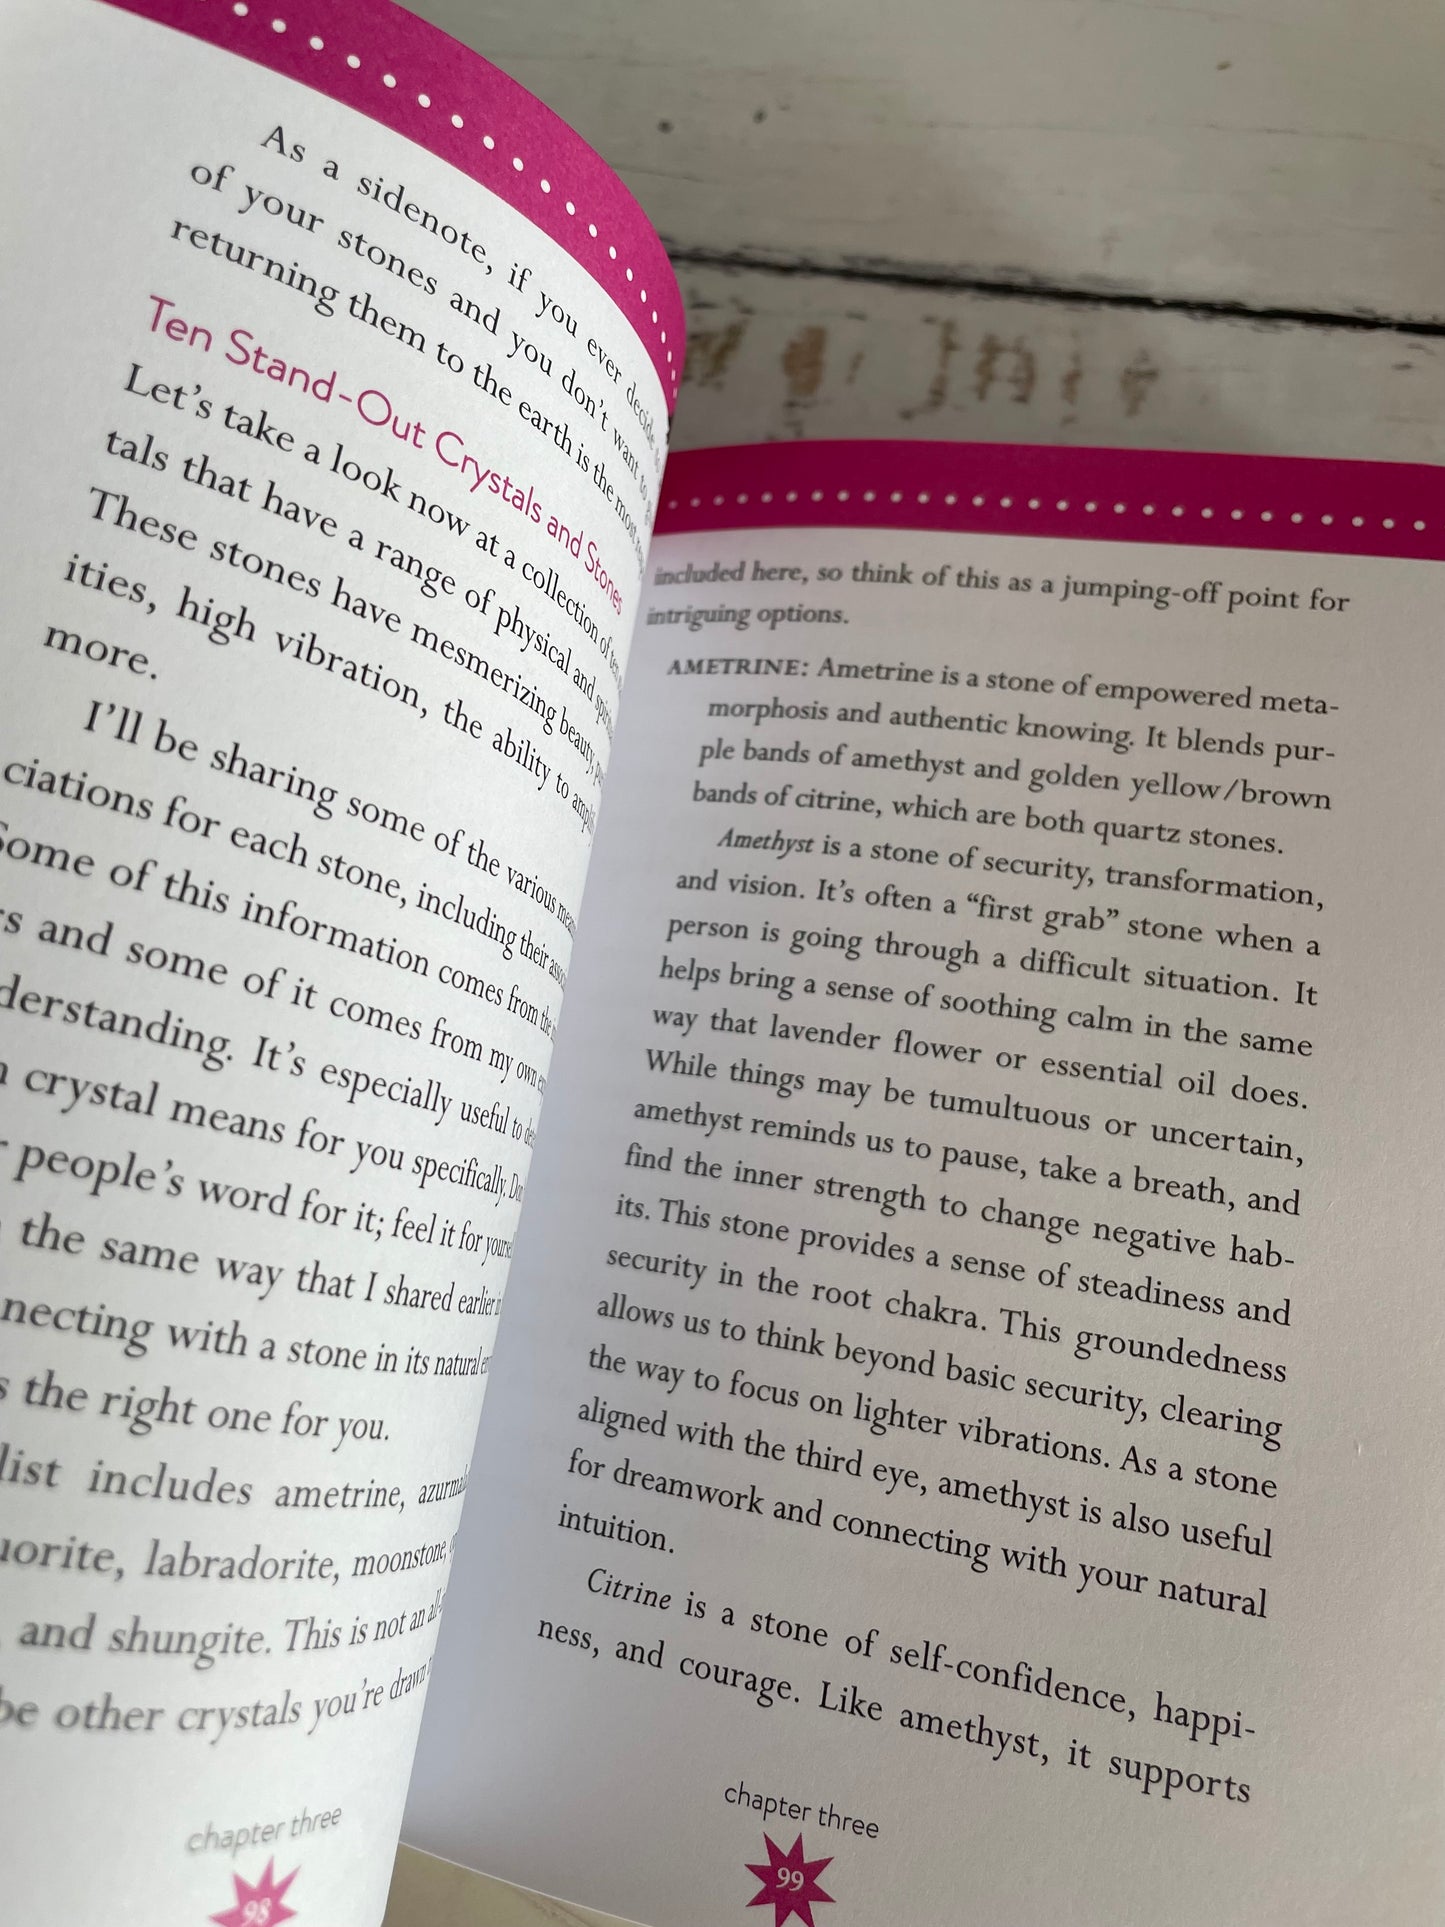 As a sidenote, if you ever decide to
of your stones and you don't want to
returning them to the earth is the most
Ten Stand-Out Crystals and Stones
Let's take a look now at a collection of ten
tals that have a range of physical and
These stones have mesmerizing beauty,
ities, high vibration, the ability to
more.
I'll be sharing some of the various
ciations for each stone, including their
Some of this information comes from the
and some of it comes from my own
derstanding. It's especially useful to
crystal means for you specifically.
people's word for it; feel it for
the same way that I shared earlier
necting with a stone in its natural
the right one for you.
list includes ametrine,
uorite, labradorite, moonstone,
and shungite. This is not an
be other crystals you're drawn
chapter three
98
included here, so think of this as a jumping-off point for
intriguing options.
AMETRINE: Ametrine is a stone of empowered meta-
morphosis and authentic knowing. It blends pur-
ple bands of amethyst and golden yellow/brown
bands of citrine, which are both quartz stones.
Amethyst is a stone of security, transformation,
and vision. It's often a “first grab” stone when a
person is going through a difficult situation. It
helps bring a sense of soothing calm in the same
way that lavender flower or essential oil does.
While things may be tumultuous or uncertain,
amethyst reminds us to pause, take a breath, and
find the inner strength to change negative hab-
its. This stone provides a sense of steadiness and
security in the root chakra. This groundedness
allows us to think beyond basic security, clearing
the way to focus on lighter vibrations. As a stone
aligned with the third eye, amethyst is also useful
for dreamwork and connecting with your natural
intuition.
Citrine is a stone of self-confidence, happi-
ness, and courage. Like amethyst, it supports
chapter three
99